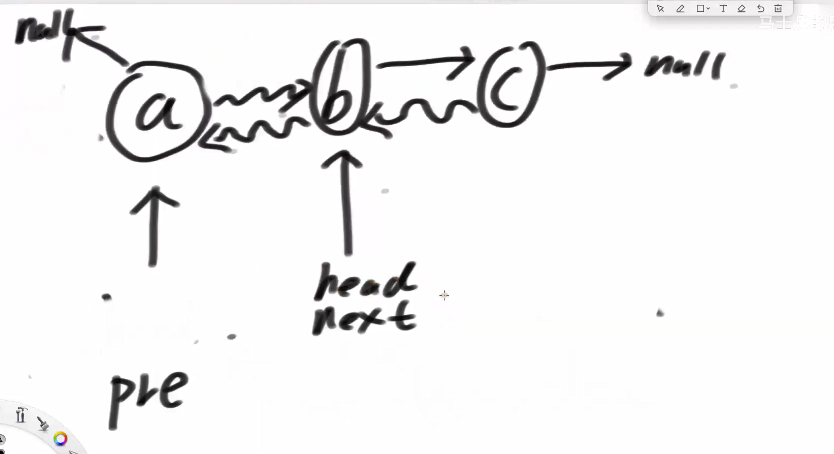 null
a
b
c
null
head
next
pre